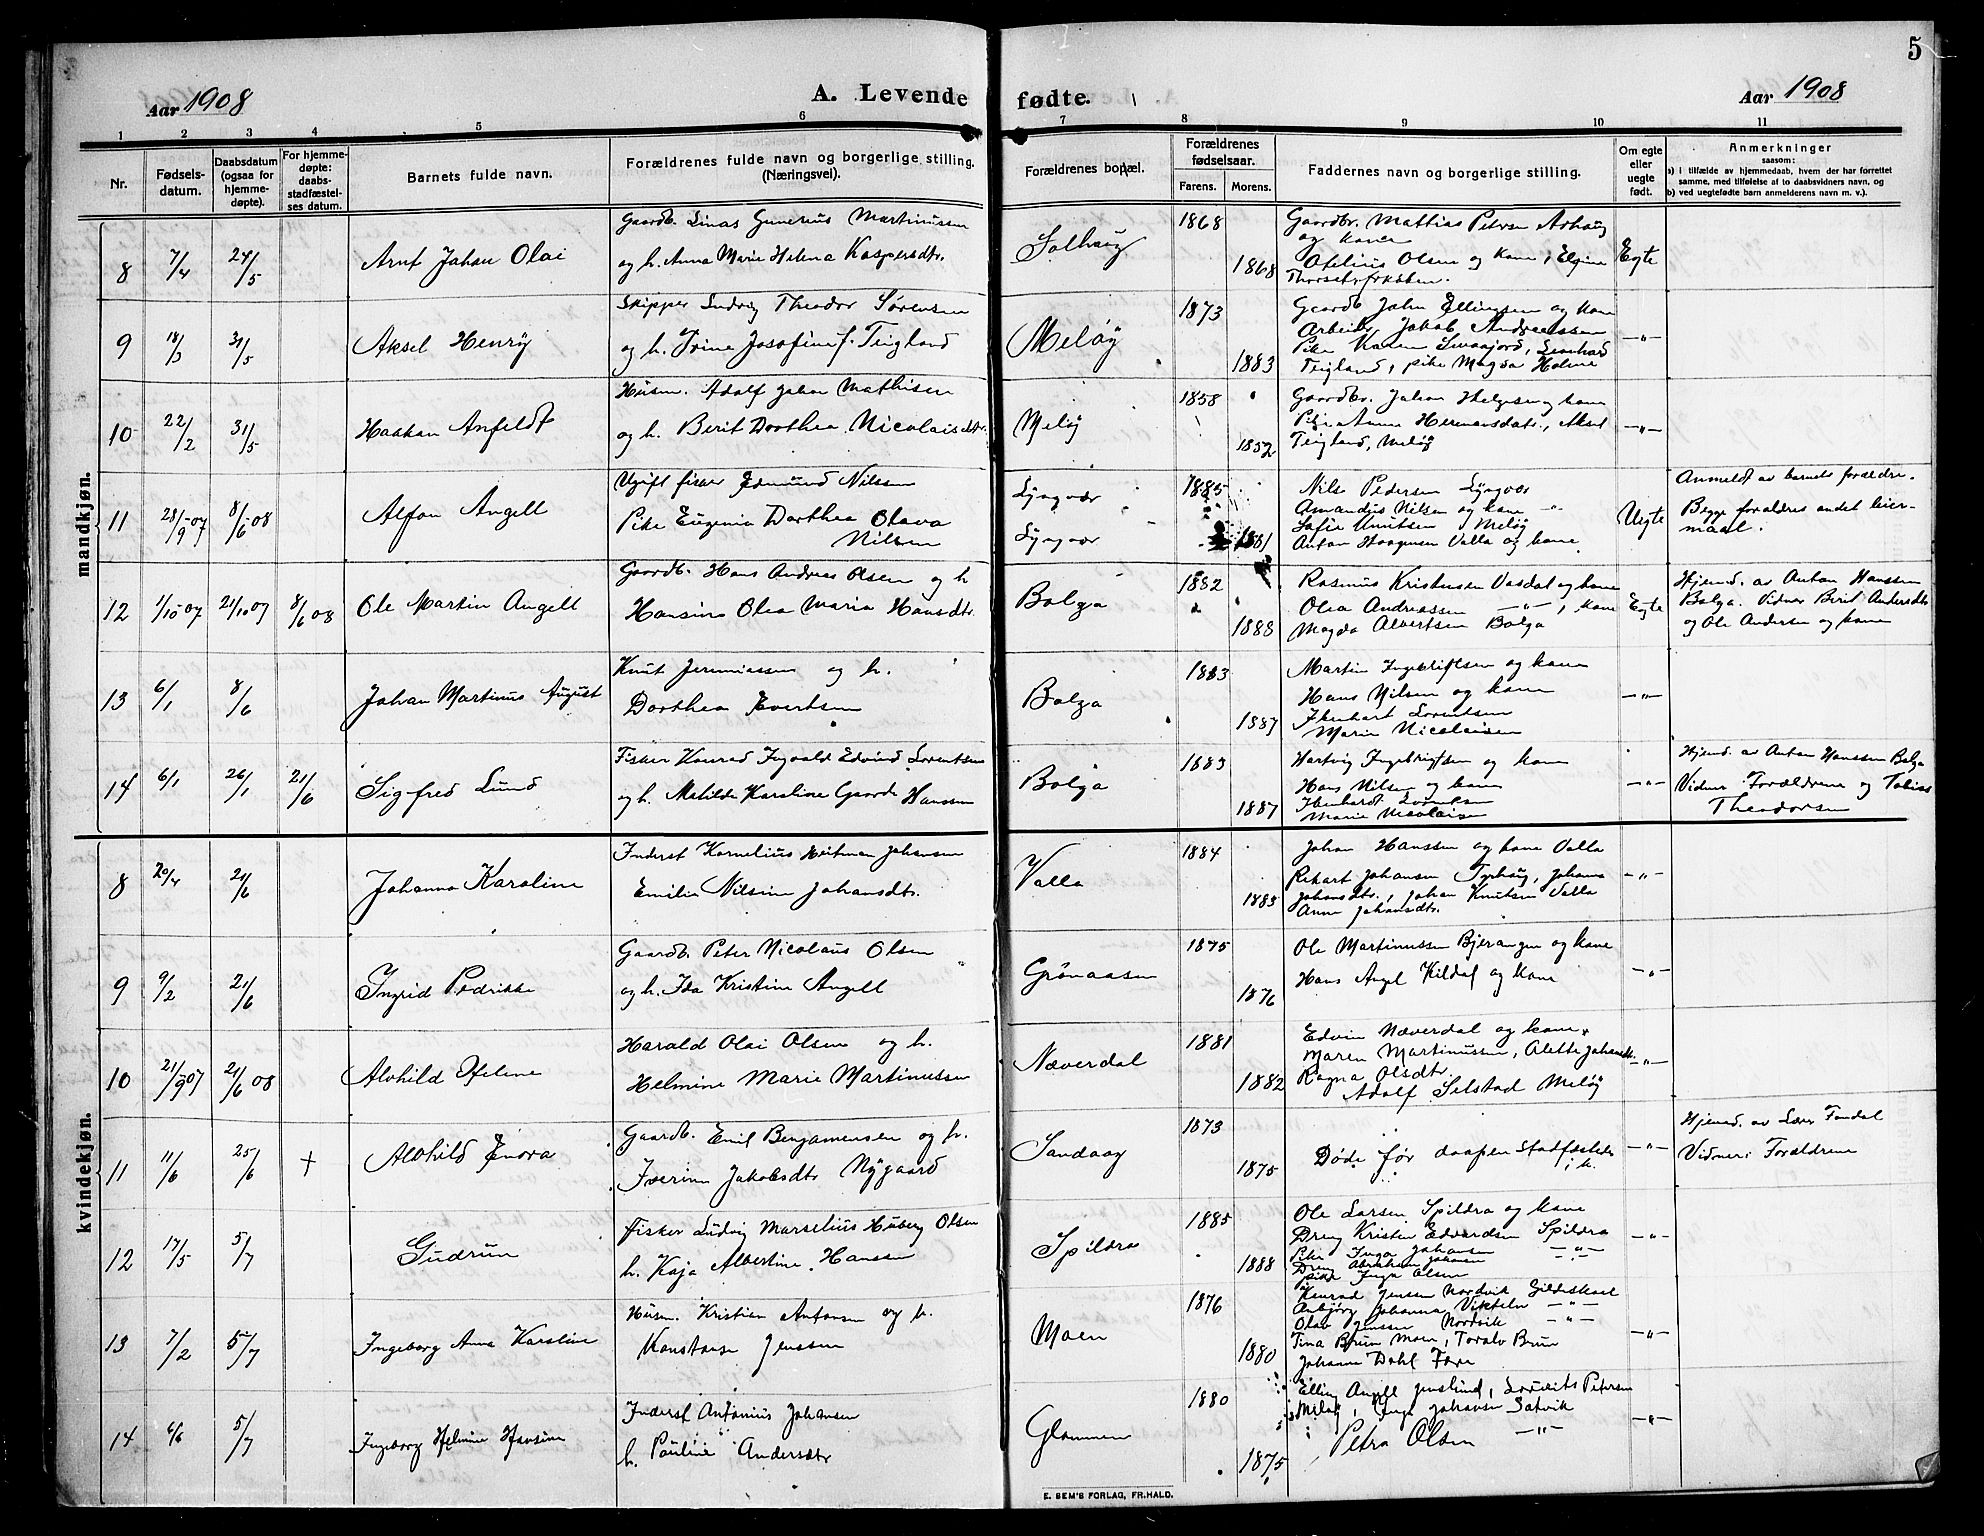 5
Aar 1908
A. Levende
fødte.
Aar 1908
1 2 3 4 5 6 7 8 9 10 11
Nr.
Fødsels-
datum.
Daabsdatum
(ogsaa for
hjemme-
døpte).
For hjemme-
døpte:
daabs-
stadfæstel-
ses datum.
Barnets fulde navn.
Forældrenes fulde navn og borgerlige stilling.
(Næringsvei).
Forældrenes bopæl.
Forældrenes
fødselsaar.
Farens. Morens.
Faddernes navn og borgerlige stilling.
Om egte
eller
uegte
født.
Anmerkninger
saasom:
a) i tilfælde av hjemmedaab, hvem der har forrettet
samme, med tilføielse af to daabsvidners navn, og
b) ved uegtefødte børn anmelderens navn m. v.).
mandkjøn.
8 7/4 24/5 Arnt Johan Olai
Gaardb. Linas Gunerius Martinussen
og h. Anna Marie Helena Kaspersdtr.
Solhaug 1868 1868
Gaardbr. Mattias Petersen Ashaug
og kone
Ofelius Olsen og kone, Elgine
Egte
9 18/3 31/5 Aksel Henry
Skipper Ludvig Theodor Sørensen
og h. Trine Josefine f. Teigland
Meløy 1873 1883
Gaardb. John Ellingsen og kone
Arbeider Jakob Andreassen
Pike Karen Smaajord, Leonhard
Teigland, pike Magda Holme
—"—
10 22/2 31/5 Haakon Anfeldt
Husm. Adolf Johan Mathisen
og h. Berit Dorthea Nicolaisdtr.
Meløy 1858 1852
Gaardbr. Johan Helgesen og kone
Pike Anne Hermansdatr., Aksel
Teigland, Meløy
—"—
11 28/9-07 8/6-08 Alfon Angell
Ugift fisker Edmund Nilssen
Pike Eugenia Dorthea Olava
Nilsen
Lyngvær
Lyngvær
1885 1881
Nils Pedersen Lyngvær
Amandus Nilsen og kone "
Sofie Knutsen Meløy
Anton Haagensen Valla og kone
Uegte
Anmeldt av barnets forældre.
Begge forældres andet leier-
maal.
12 1/10-07 21/10 07 8/6 08 Ole Martin Angell
Gaardb. Hans Andreas Olsen og h
Hansine Olea Maria Hansdtr.
Bolga 1882 1888
Rasmus Kristensen Vasdal og kone
Olea Andreassen —"—, kone
Magda Albertsen Bolga
Egte
Hjemd. av Anton Hanssen
Bolga. Vidner Berit Andersdtr
og Ole Andersen og kone
13 6/1 8/6 Johan Martinus August
Knut Jeremiassen og h.
Dorthea Evertsen
Bolga 1883 1887
Martin Ingebrigtsen og kone
Hans Nilsen og kone
Ikenhart Lorentsen
Marie Nicolaisen
—"—
14 6/1 26/1 21/6 Sigfred Lund
Fisker Konrad Ingvald Edvind Lorentsen
og h. Matilde Karoline Gaarde Hanssen
Bolga 1883 1887
Hartvig Ingebrigtsen og kone
Hans Nilsen og kone
Ikenhardt Lorentsen
Marie Nicolaisen
—"—
Hjemd. av Anton Hanssen Bolga
Vidner: Forældrene og Tobias
Theodorsen
kvindekjøn.
8 20/4 21/6 Johanna Karoline
Inderst Kornelius Heitman Johansen
Emilie Nilsine Johansdtr.
Valla 1884 1885
Johan Hanssen og kone Valla
Rikart Johansen Tyshaug, Johanna
Johansdtr., Johan Knutsen Valla
Anne Johansdtr.
—"—
9 9/2 21/6 Ingrid Pedrikke
Gaardb. Peter Nicolaus Olsen
og h. Ida Kristine Angell
Grønaasen 1875 1876
Ole Martinussen Bjerangen og kone
Hans Angel Kildal og kone
—"—
10 21/9 07 21/6 08 Alvhild Helene
Harald Olai Olsen og h.
Helmine Marie Martinussen
Næverdal 1881 1882
Edvin Næverdal og kone
Maren Martinussen, Alette Johansdtr.
Ragna Olsdtr.
Adolf Selstad Meløy
—"—
11 11/6 25/6 + Alvhild Enora
Gaardb. Emil Benjamensen og h.
Iverine Jakobsdtr Nygaard
Sandaag 1873 1875
Døde før daapen stadfæstedes
i k.
—"—
Hjemd. av Lærer Fondal
Vidner: Forældrene
12 17/5 5/7 Gudrun
Fisker Ludvig Marselius Huberg Olsen
h. Kaja Albertine Hanssen
Spildra 1885 1888
Ole Larsen Spildra og kone
Dreng Kristen Edvardsen Spildra
Pike Inga Johansen —"—
Dreng Abraham Johansen —"—
pike Inga Olsen
—"—
13 7/2 5/7 Ingeborg Anna Karoline
Husm. Kristian Antonsen og h.
Konstanse Jenssen
Moen 1876 1880
Konrad Jenssen Nordvik Gildeskaal
Anbjørg Johanna —"—
Olav Jenssen Nordvik —"—
Tina Bruun Moen, Toralv Bruun
Johanne Dahl Fore
—"—
14 6/6 5/7 Ingeborg Helmine Hansine
Inderst Antonius Johansen
h. Pauline Andersdtr
Glommen 1880 1875
Elling Angell Jenslund, Lorents Petersen
Meløy, Inga Johansen Sætvik
Petra Olsen —"—
—"—
E. SEM'S FORLAG, FR.HALD.